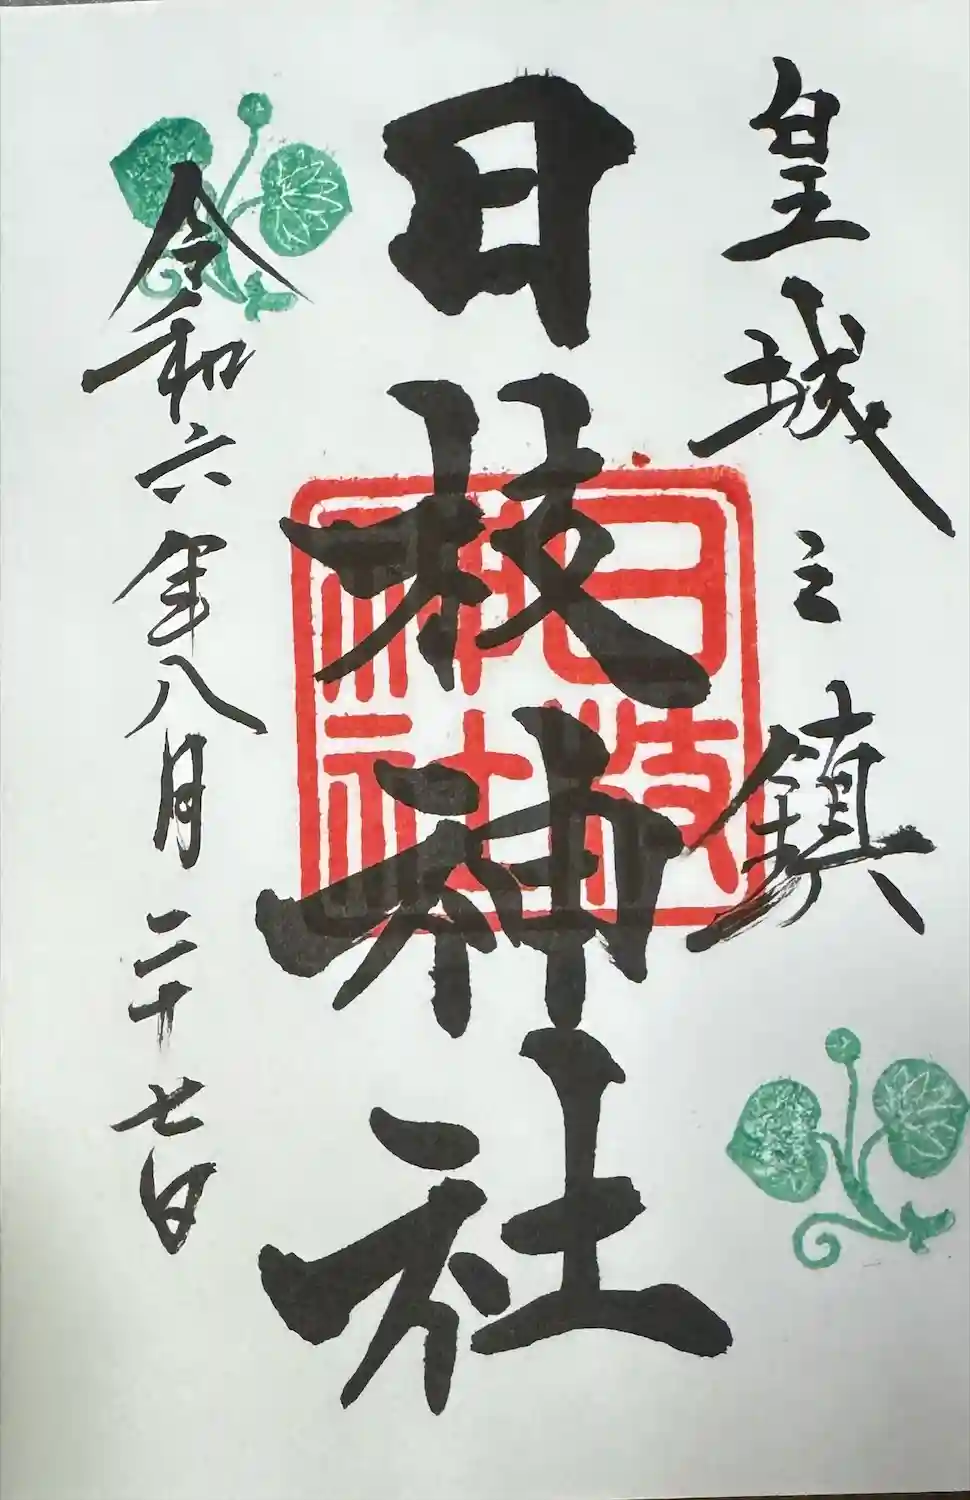 皇城之鎮
日枝神社
日枝神社
令和六年八月二十七日